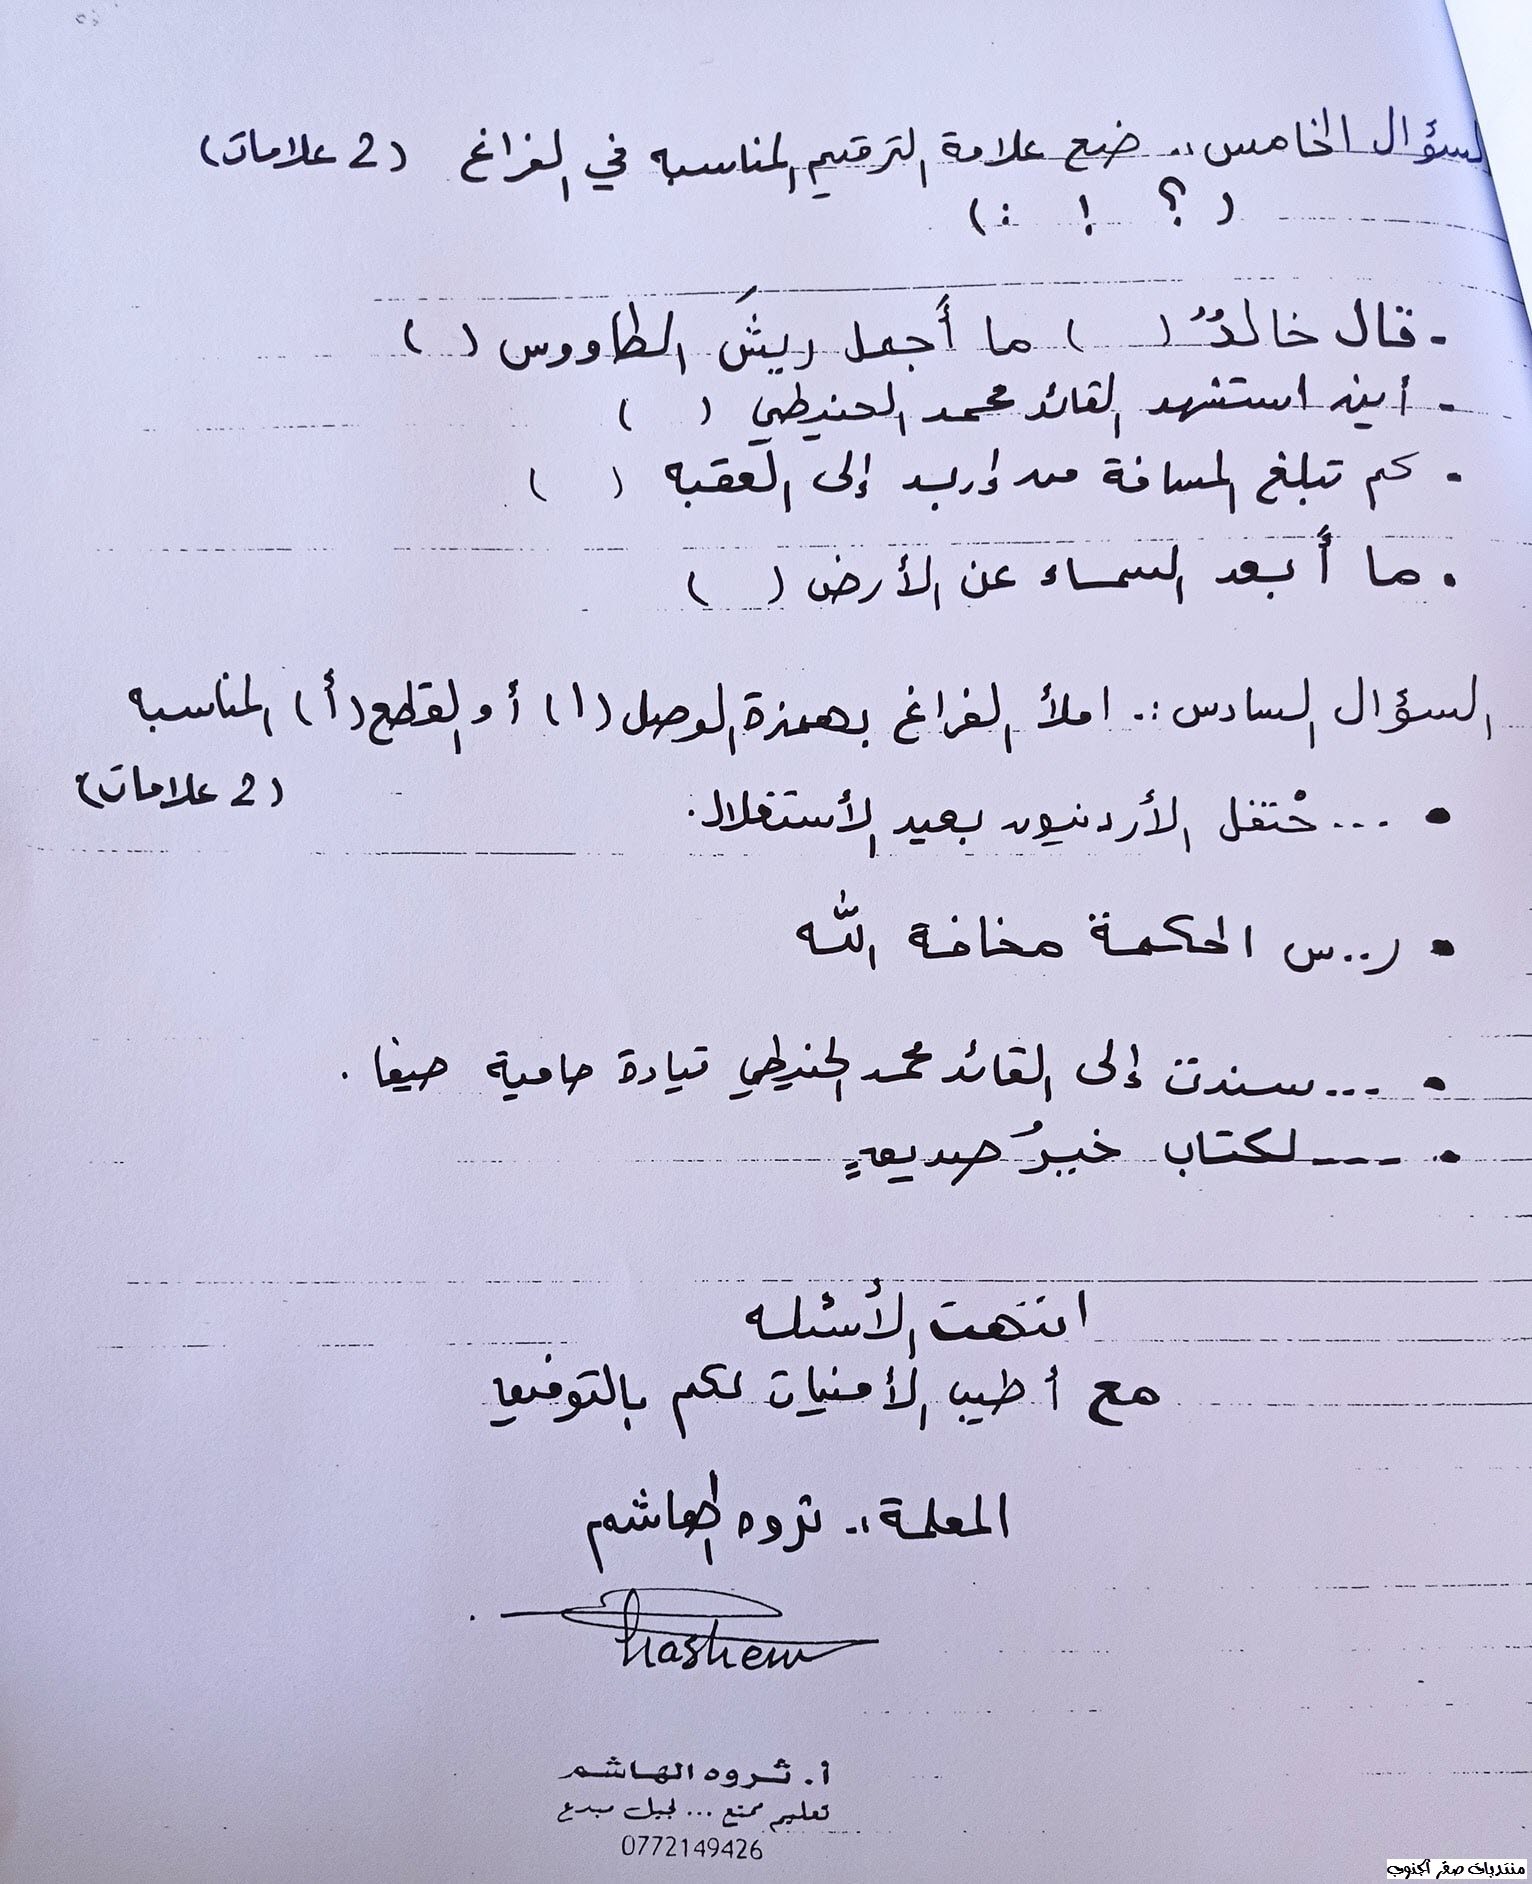 لسؤال الخامس :. ضع علامة الترقيم المناسبه في الفراغ (2 علامات)
( ؟ ! : )
- قال خالدٌ ( ) ما أَجمل ريشَ الطاووس ( )
- أين استشهد القائد محمد الحنيطي ( )
- كم تبلغ المسافة من إربد إلى العقبه ( )
- ما أَبعد السماء عن الأرض ( )
السؤال السادس :. املأ الفراغ بهمزة الوصل (ا) أو القطع (أ) المناسبه
(2 علامات)
• ...حْتفل الأردنيون بعيد الأستقلال.
• ر..س الحكمة مخافة الله
• ...سندت إلى القائد محمد الحنيطي قيادة حامية حيفا .
• ....لكتاب خيرُ صديقٍ
انتهت الأسئله
مع أطيب الأمنيات لكم بالتوفيق
المعلمة :. ثروه الهاشم
hashem
أ. ثروه الهاشم
تعليم ممتع ... لجيل مبدع
0772149426
منتديات صقر الجنوب